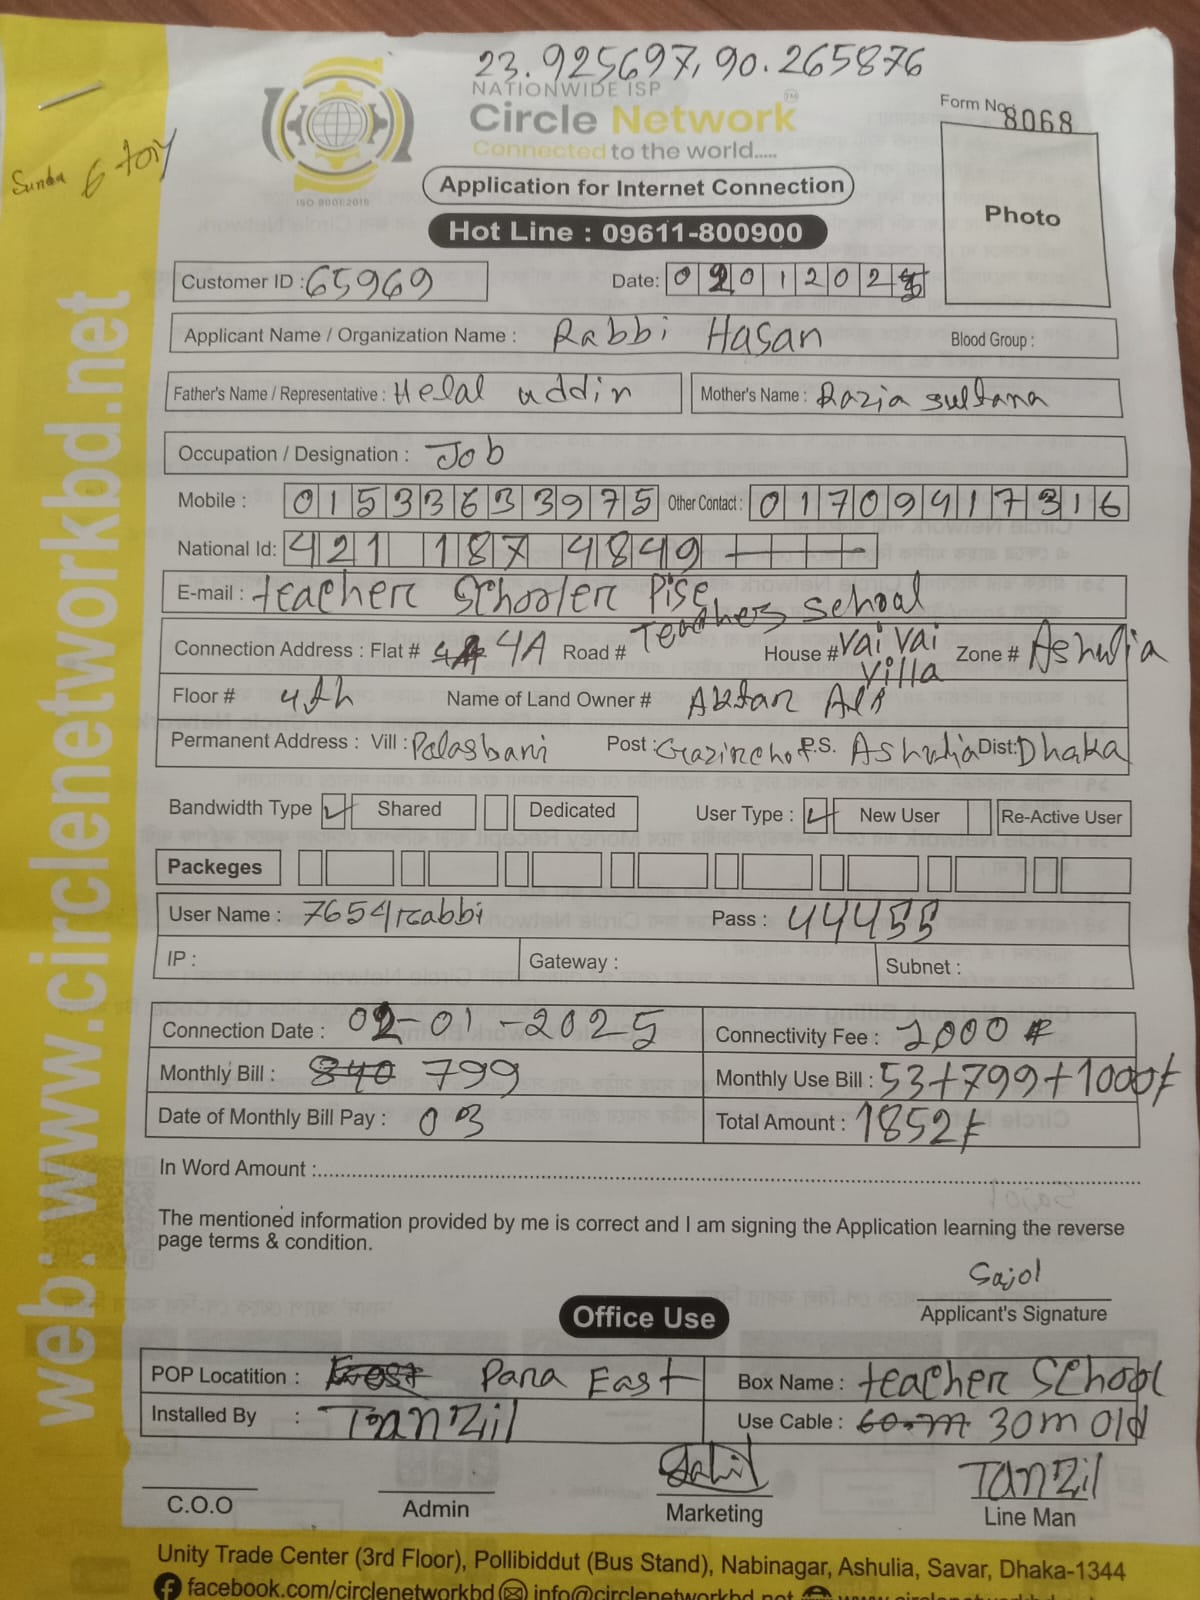 23.925697, 90.265876
NATIONWIDE ISP
Circle Network™
Connected to the world.....
ISO 9001:2015
Form No: 8068
Sunda 6 tory
Application for Internet Connection
Photo
Hot Line : 09611-800900
Customer ID : 65969 Date: 02012025
Applicant Name / Organization Name : Rabbi Hasan Blood Group :
Father's Name / Representative : Helal uddin Mother's Name : Razia sultana
Occupation / Designation : Job
Mobile : 01533633975 Other Contact : 01709417316
National Id: 421 187 4849 - -
E-mail : teacher Schooler Pise
Connection Address : Flat # 4A Road # Teachers school House # Vai Vai Villa Zone # Ashulia
Floor # 4th Name of Land Owner # Aktar Ali
Permanent Address : Vill : Palasbari Post : Gazirchot P.S. Ashulia Dist: Dhaka
Bandwidth Type ✓ Shared Dedicated User Type : ✓ New User Re-Active User
Packeges
User Name : 7654rabbi Pass : 44455
IP : Gateway : Subnet :
Connection Date : 02-01-2025 Connectivity Fee : 1000৳
Monthly Bill : 840 799 Monthly Use Bill : 53+799+1000৳
Date of Monthly Bill Pay : 03 Total Amount : 1852৳
In Word Amount :
The mentioned information provided by me is correct and I am signing the Application learning the reverse
page terms & condition.
Sajol
Applicant's Signature
Office Use
POP Locatition : Para East Box Name : teacher School
Installed By : Tanzil Use Cable : 60m 30m old
Tanzil
C.O.O Admin Marketing Line Man
Unity Trade Center (3rd Floor), Pollibiddut (Bus Stand), Nabinagar, Ashulia, Savar, Dhaka-1344
facebook.com/circlenetworkbd info@circlenetworkbd.net
web: www.circlenetworkbd.net